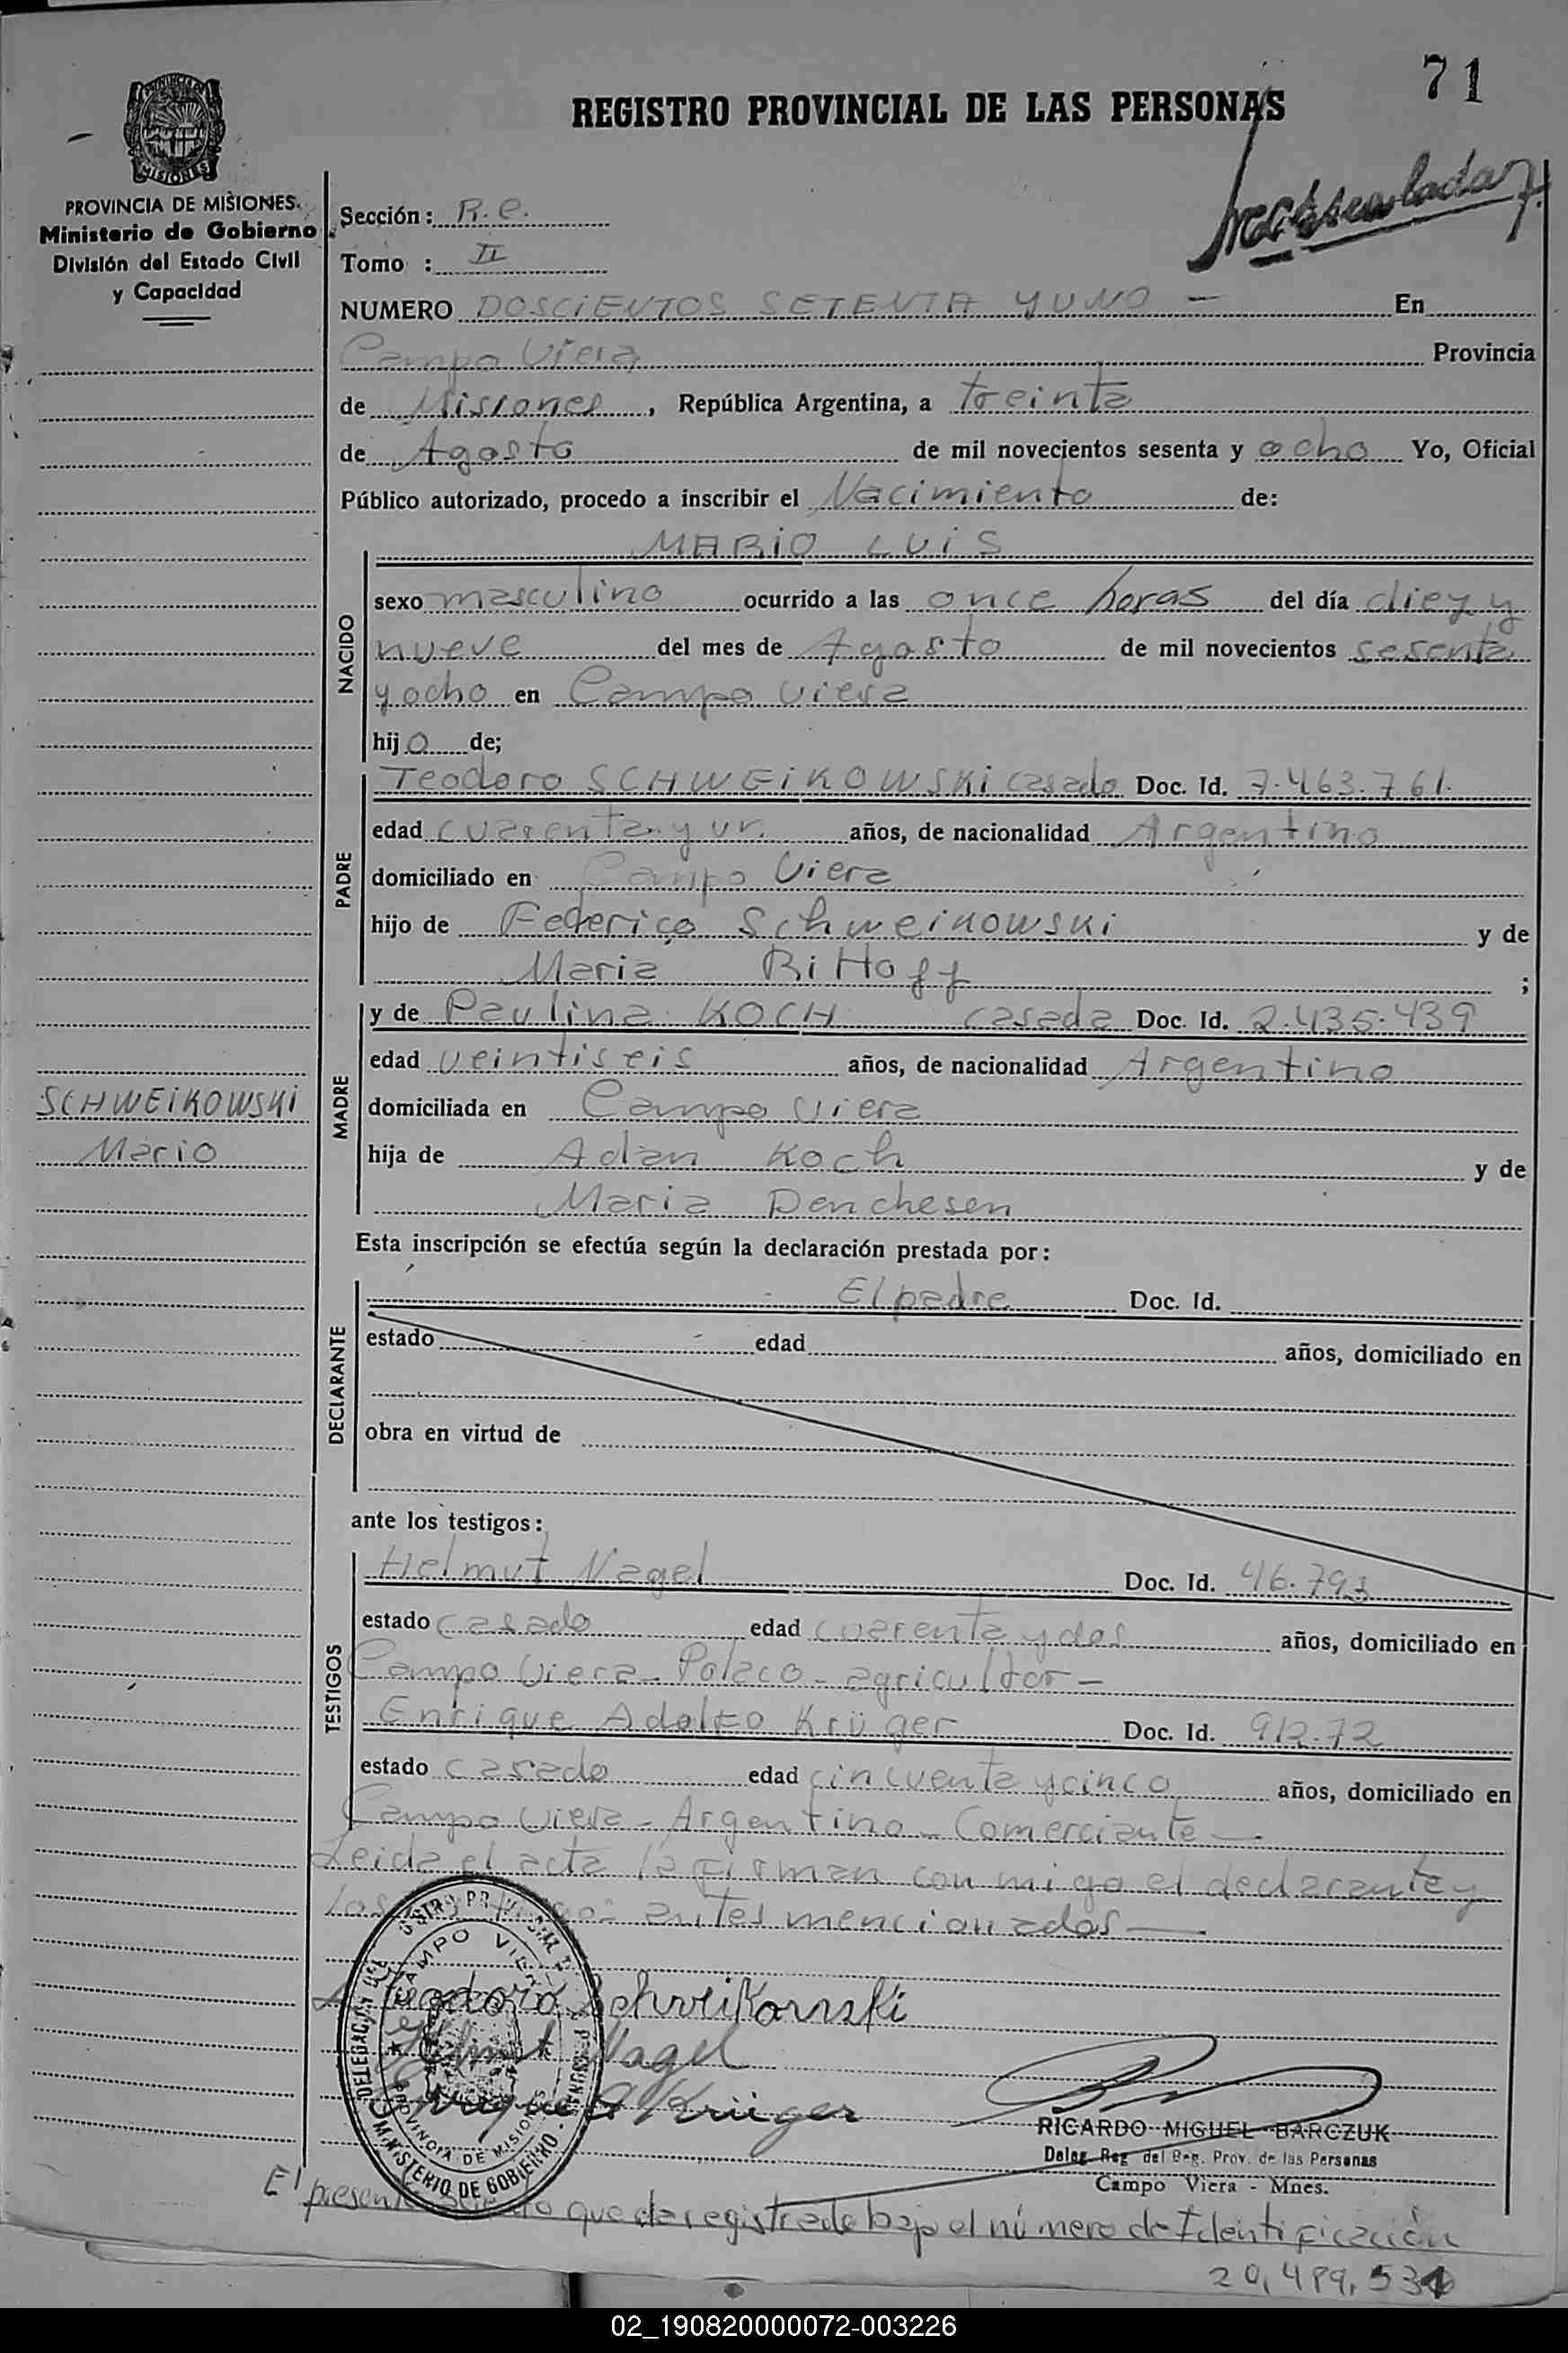 71
REGISTRO PROVINCIAL DE LAS PERSONAS
PROVINCIA DE MISIONES
MISIONES
PROVINCIA DE MISIONES.
Ministerio de Gobierno
División del Estado Civil
y Capacidad
Sección: R. C.
Tomo : II
NUMERO DOSCIENTOS SETENTA Y UNO — En
Campo Viera Provincia
de Misiones, República Argentina, a treinta
de Agosto de mil novecientos sesenta y ocho Yo, Oficial
Público autorizado, procedo a inscribir el Nacimiento de:
NACIDO
MARIO LUIS
sexo masculino ocurrido a las once horas del día diez y
nueve del mes de Agosto de mil novecientos sesenta
y ocho en Campo Viera
hijo de;
PADRE
Teodoro SCHWEiKOWSKi casado Doc. Id. 7.463.761.
edad cuarenta y un años, de nacionalidad Argentino
domiciliado en Campo Viera
hijo de Federico Schweikowski y de
Maria RiHoff ;
MADRE
y de Paulina KOCH casada Doc. Id. 2.435.439
edad veintiseis años, de nacionalidad Argentino
domiciliada en Campo Viera
hija de Adan Koch y de
Maria Denchesen
SCHWEiKOWSKi
Mario
Esta inscripción se efectúa según la declaración prestada por:
DECLARANTE
El padre Doc. Id.
estado edad años, domiciliado en
obra en virtud de
ante los testigos:
TESTIGOS
Helmut Nagel Doc. Id. 46.793
estado casado edad cuarenta y dos años, domiciliado en
Campo Viera - Polaco - agricultor -
Enrique Adolfo Krüger Doc. Id. 912.72
estado casado edad cincuenta y cinco años, domiciliado en
Campo Viera - Argentino - Comerciante -
Leida el acta la firman con migo el declarante y
los antes mencionados —
Teodoro Schweikowski
Helmut Nagel
Enrique A Krüger
CAMPO VIERA
PROVINCIA DE MISIONES
MINISTERIO DE GOBIERNO
RICARDO MIGUEL BARCZUK
Deleg. Reg. del Reg. Prov. de las Personas
Campo Viera - Mnes.
El presente queda registrado bajo el número de Identificación
20,489,53
02_190820000072-003226